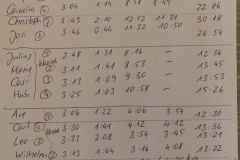 Cornelia 4 3:04 1:14 8:58 8:49 22:06
Christoph 7 3:43 2:10 12:52 11:31 30:18
Josi 3:46 0:46 11:32 10:50 26:54
Julius 2:48 1:31 8:16 — 12:36
Marie 3:11 1:41 8:53 — 13:45
Cosi 3:13 1:09 9:30 — 13:53
Hubi 3:25 1:03 10:58 — 15:26
Ave 3:06 1:22 4:06 3:54 12:30
Carl 3:30 1:41 4:12 4:12 13:36
Leo 3:33 2:08 3:54 3:45 13:21
Wilhelm 3:13 1:44 3:16 4:08 13:22